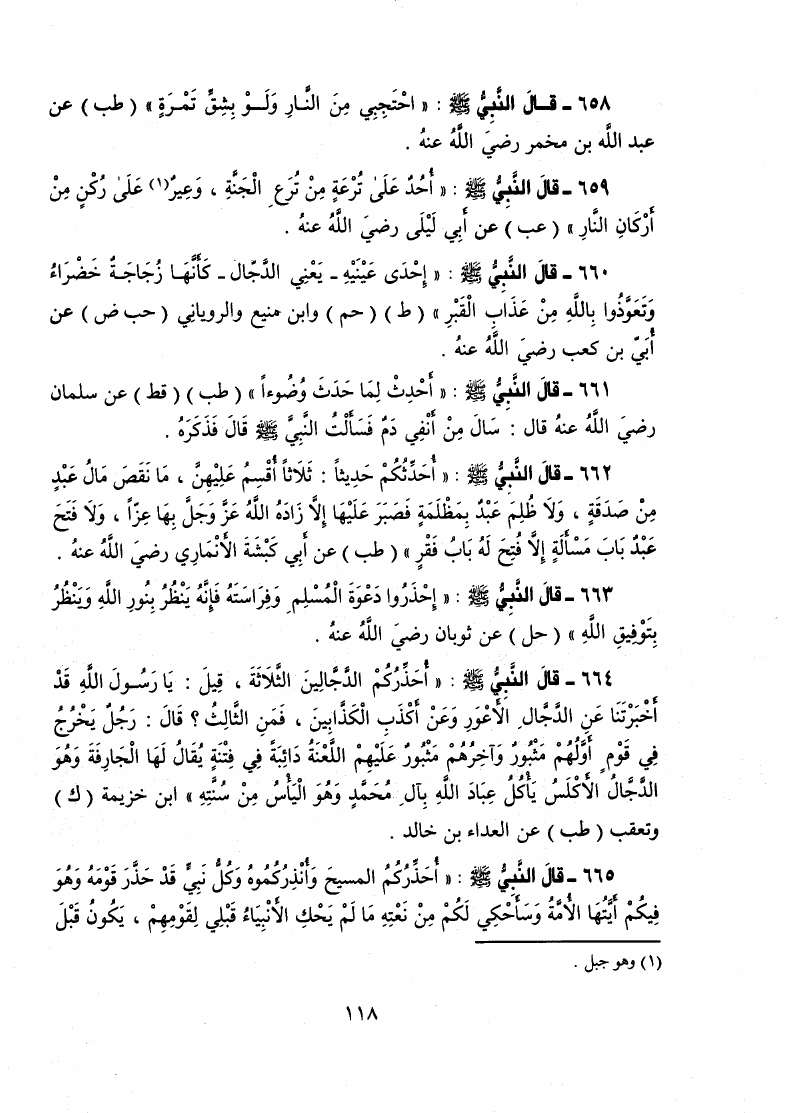 ٦٥٨ - قَالَ النَّبِيُّ ﷺ : « احْتَجِبِي مِنَ النَّارِ وَلَوْ بِشِقِّ تَمْرَةٍ » ( طب ) عن
عبد الله بن مخمر رضيَ اللَّهُ عنهُ .
٦٥٩ - قَالَ النَّبِيُّ ﷺ : « أُحُدٌ عَلَىٰ تُرْعَةٍ مِنْ تُرَعِ الْجَنَّةِ ، وَعِيرٌ(١) عَلَىٰ رُكْنٍ مِنْ
أَرْكَانِ النَّارِ » ( عب ) عن أَبِي لَيْلَى رضيَ اللَّهُ عنهُ .
٦٦٠ - قَالَ النَّبِيُّ ﷺ : « إِحْدَى عَيْنَيْهِ - يَعْنِي الدَّجَّالَ - كَأَنَّهَا زُجَاجَةٌ خَضْرَاءُ
وَتَعَوَّذُوا بِاللَّهِ مِنْ عَذَابِ الْقَبْرِ » ( ط ) ( حم ) وابن منيع والروياني ( حب ض ) عن
أُبَيِّ بن كعب رضيَ اللَّهُ عنهُ .
٦٦١ - قَالَ النَّبِيُّ ﷺ : « أَحْدِثْ لِمَا حَدَثَ وُضُوءاً » ( طب ) ( قط ) عن سلمان
رضيَ اللَّهُ عنهُ قال : سَالَ مِنْ أَنْفِي دَمٌ فَسَأَلْتُ النَّبِيَّ ﷺ قَالَ فَذَكَرَهُ .
٦٦٢ - قَالَ النَّبِيُّ ﷺ : « أُحَدِّثُكُمْ حَدِيثاً : ثَلَاثاً أُقْسِمُ عَلَيْهِنَّ ، مَا نَقَصَ مَالُ عَبْدٍ
مِنْ صَدَقَةٍ ، وَلَا ظُلِمَ عَبْدٌ بِمَظْلَمَةٍ فَصَبَرَ عَلَيْهَا إِلَّا زَادَهُ اللَّهُ عَزَّ وَجَلَّ بِهَا عِزّاً ، وَلَا فَتَحَ
عَبْدٌ بَابَ مَسْأَلَةٍ إِلَّا فُتِحَ لَهُ بَابُ فَقْرٍ » ( طب ) عن أَبِي كَبْشَةَ الْأَنْمَارِي رضيَ اللَّهُ عنهُ .
٦٦٣ - قَالَ النَّبِيُّ ﷺ : « إِحْذَرُوا دَعْوَةَ الْمُسْلِمِ وَفِرَاسَتَهُ فَإِنَّهُ يَنْظُرُ بِنُورِ اللَّهِ وَيَنْظُرُ
بِتَوْفِيقِ اللَّهِ » ( حل ) عن ثوبان رضيَ اللَّهُ عنهُ .
٦٦٤ - قَالَ النَّبِيُّ ﷺ : « أُحَذِّرُكُمْ الدَّجَّالِينَ الثَّلَاثَةَ ، قِيلَ : يَا رَسُولَ اللَّهِ قَدْ
أَخْبَرْتَنَا عَنِ الدَّجَّالِ الْأَعْوَرِ وَعَنْ أَكْذَبِ الْكَذَّابِينَ ، فَمَنِ الثَّالِثُ ؟ قَالَ : رَجُلٌ يَخْرُجُ
فِي قَوْمٍ أَوَّلُهُمْ مَثْبُورٌ وَآخِرُهُمْ مَثْبُورٌ عَلَيْهِمْ اللَّعْنَةُ دَائِبَةً فِي فِتْنَةٍ يُقَالُ لَهَا الْجَارِفَةَ وَهُوَ
الدَّجَّالُ الْأَكْلَسُ يَأْكُلُ عِبَادَ اللَّهِ بِآلِ مُحَمَّدٍ وَهُوَ الْيَأْسُ مِنْ سُنَّتِهِ » ابن خزيمة ( ك )
وتعقب ( طب ) عن العداء بن خالد .
٦٦٥ - قَالَ النَّبِيُّ ﷺ : « أُحَذِّرُكُم المسيحَ وَأُنْذِرُكُمُوهُ وَكُلُّ نَبِيٍّ قَدْ حَذَّرَ قَوْمَهُ وَهُوَ
فِيكُمْ أَيَّتُهَا الْأُمَّةُ وَسَأَحْكِي لَكُمْ مِنْ نَعْتِهِ مَا لَمْ يَحْكِ الْأَنْبِيَاءُ قَبْلِي لِقَوْمِهِمْ ، يَكُونُ قَبْلَ
(١) وهو جبل .
١١٨